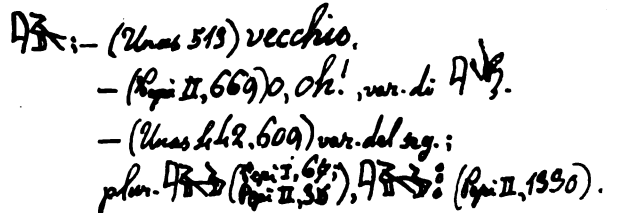 :— (Unas 519) vecchio.
— (Pepi II, 669) o, oh!, var. di
— (Unas 442, 609) var. del seg.;
plur. (Pepi I, 64; Pepi II, 38), (Pepi II, 1330).